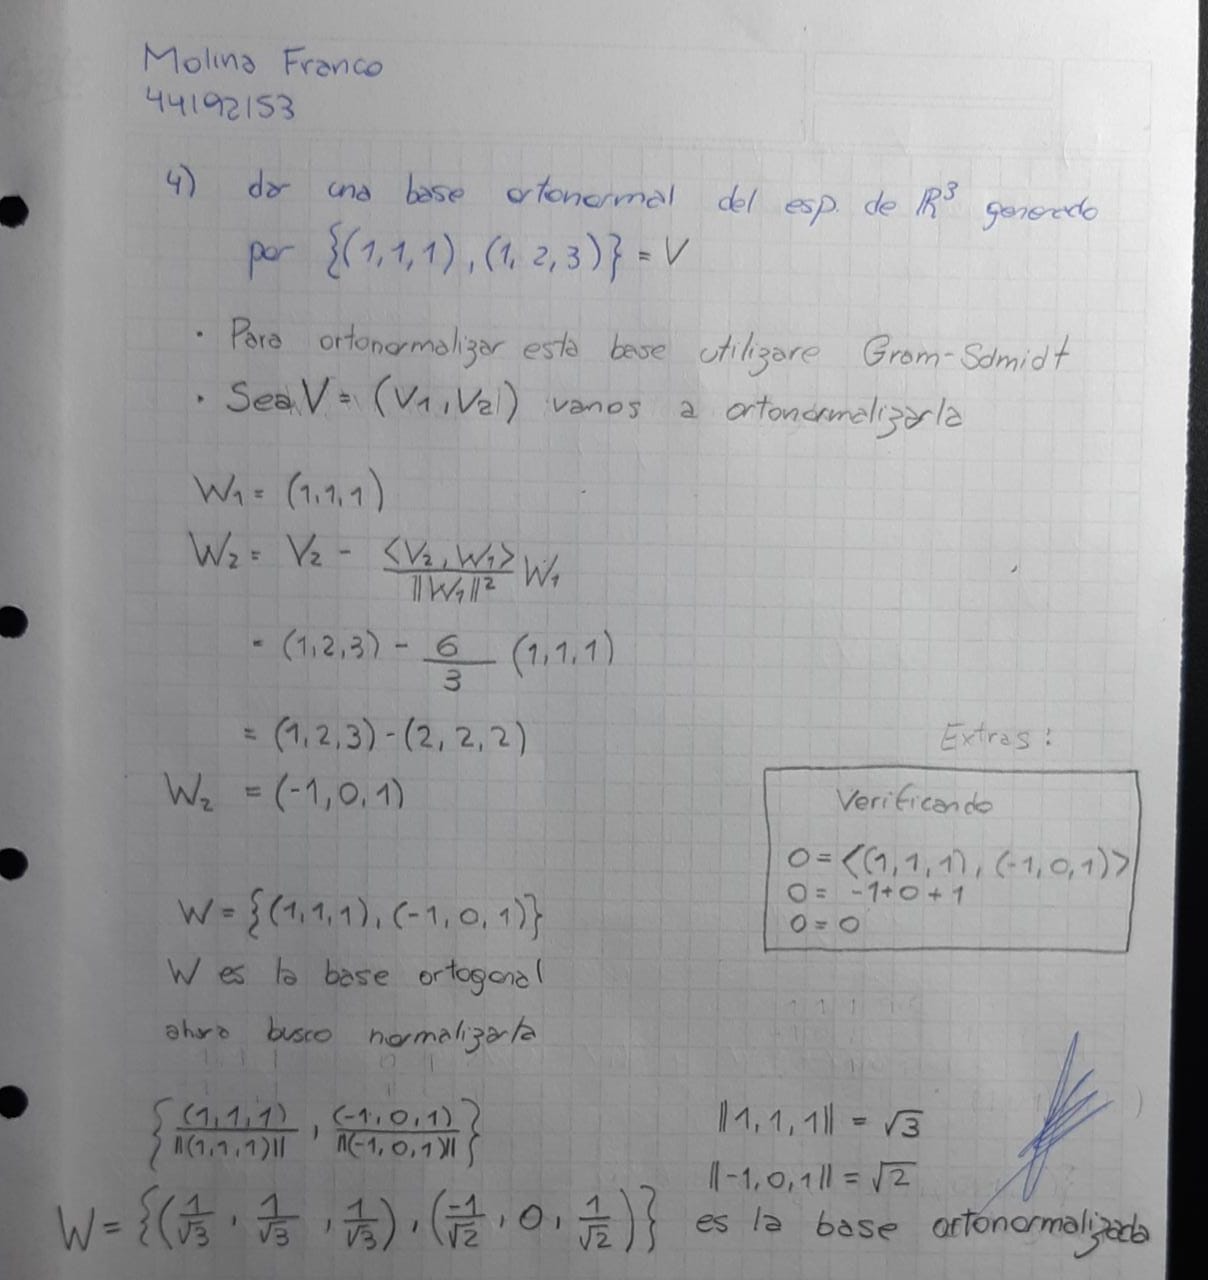 Molina Franco
44192153
4) dar una base ortonormal del esp. de ℝ³ generado
por {(1,1,1),(1,2,3)} = V
· Para ortonormalizar esta base utilizare Gram-Sdmidt
· Sea V = (V₁,V₂) vamos a ortonormalizarla
W₁ = (1,1,1)
W₂ = V₂ - <V₂,W₁>/||W₁||² W₁
= (1,2,3) - 6/3 (1,1,1)
= (1,2,3)-(2,2,2)
W₂ = (-1,0,1)
Extras:
Verificando
0 = <(1,1,1),(-1,0,1)>
0 = -1+0+1
0 = 0
W = {(1,1,1),(-1,0,1)}
W es la base ortogonal
ahora busco normalizarla
{(1,1,1)/||(1,1,1)||, (-1,0,1)/||(-1,0,1)||}
||1,1,1|| = √3
||-1,0,1|| = √2
W = {(1/√3, 1/√3, 1/√3), (-1/√2, 0, 1/√2)} es la base ortonormalizada